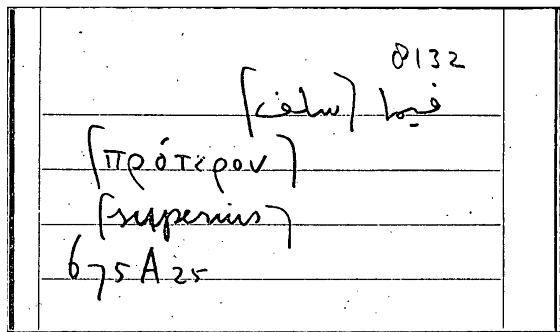 8132
فيما [سلف]
[πρότερον]
[superius]
675A25